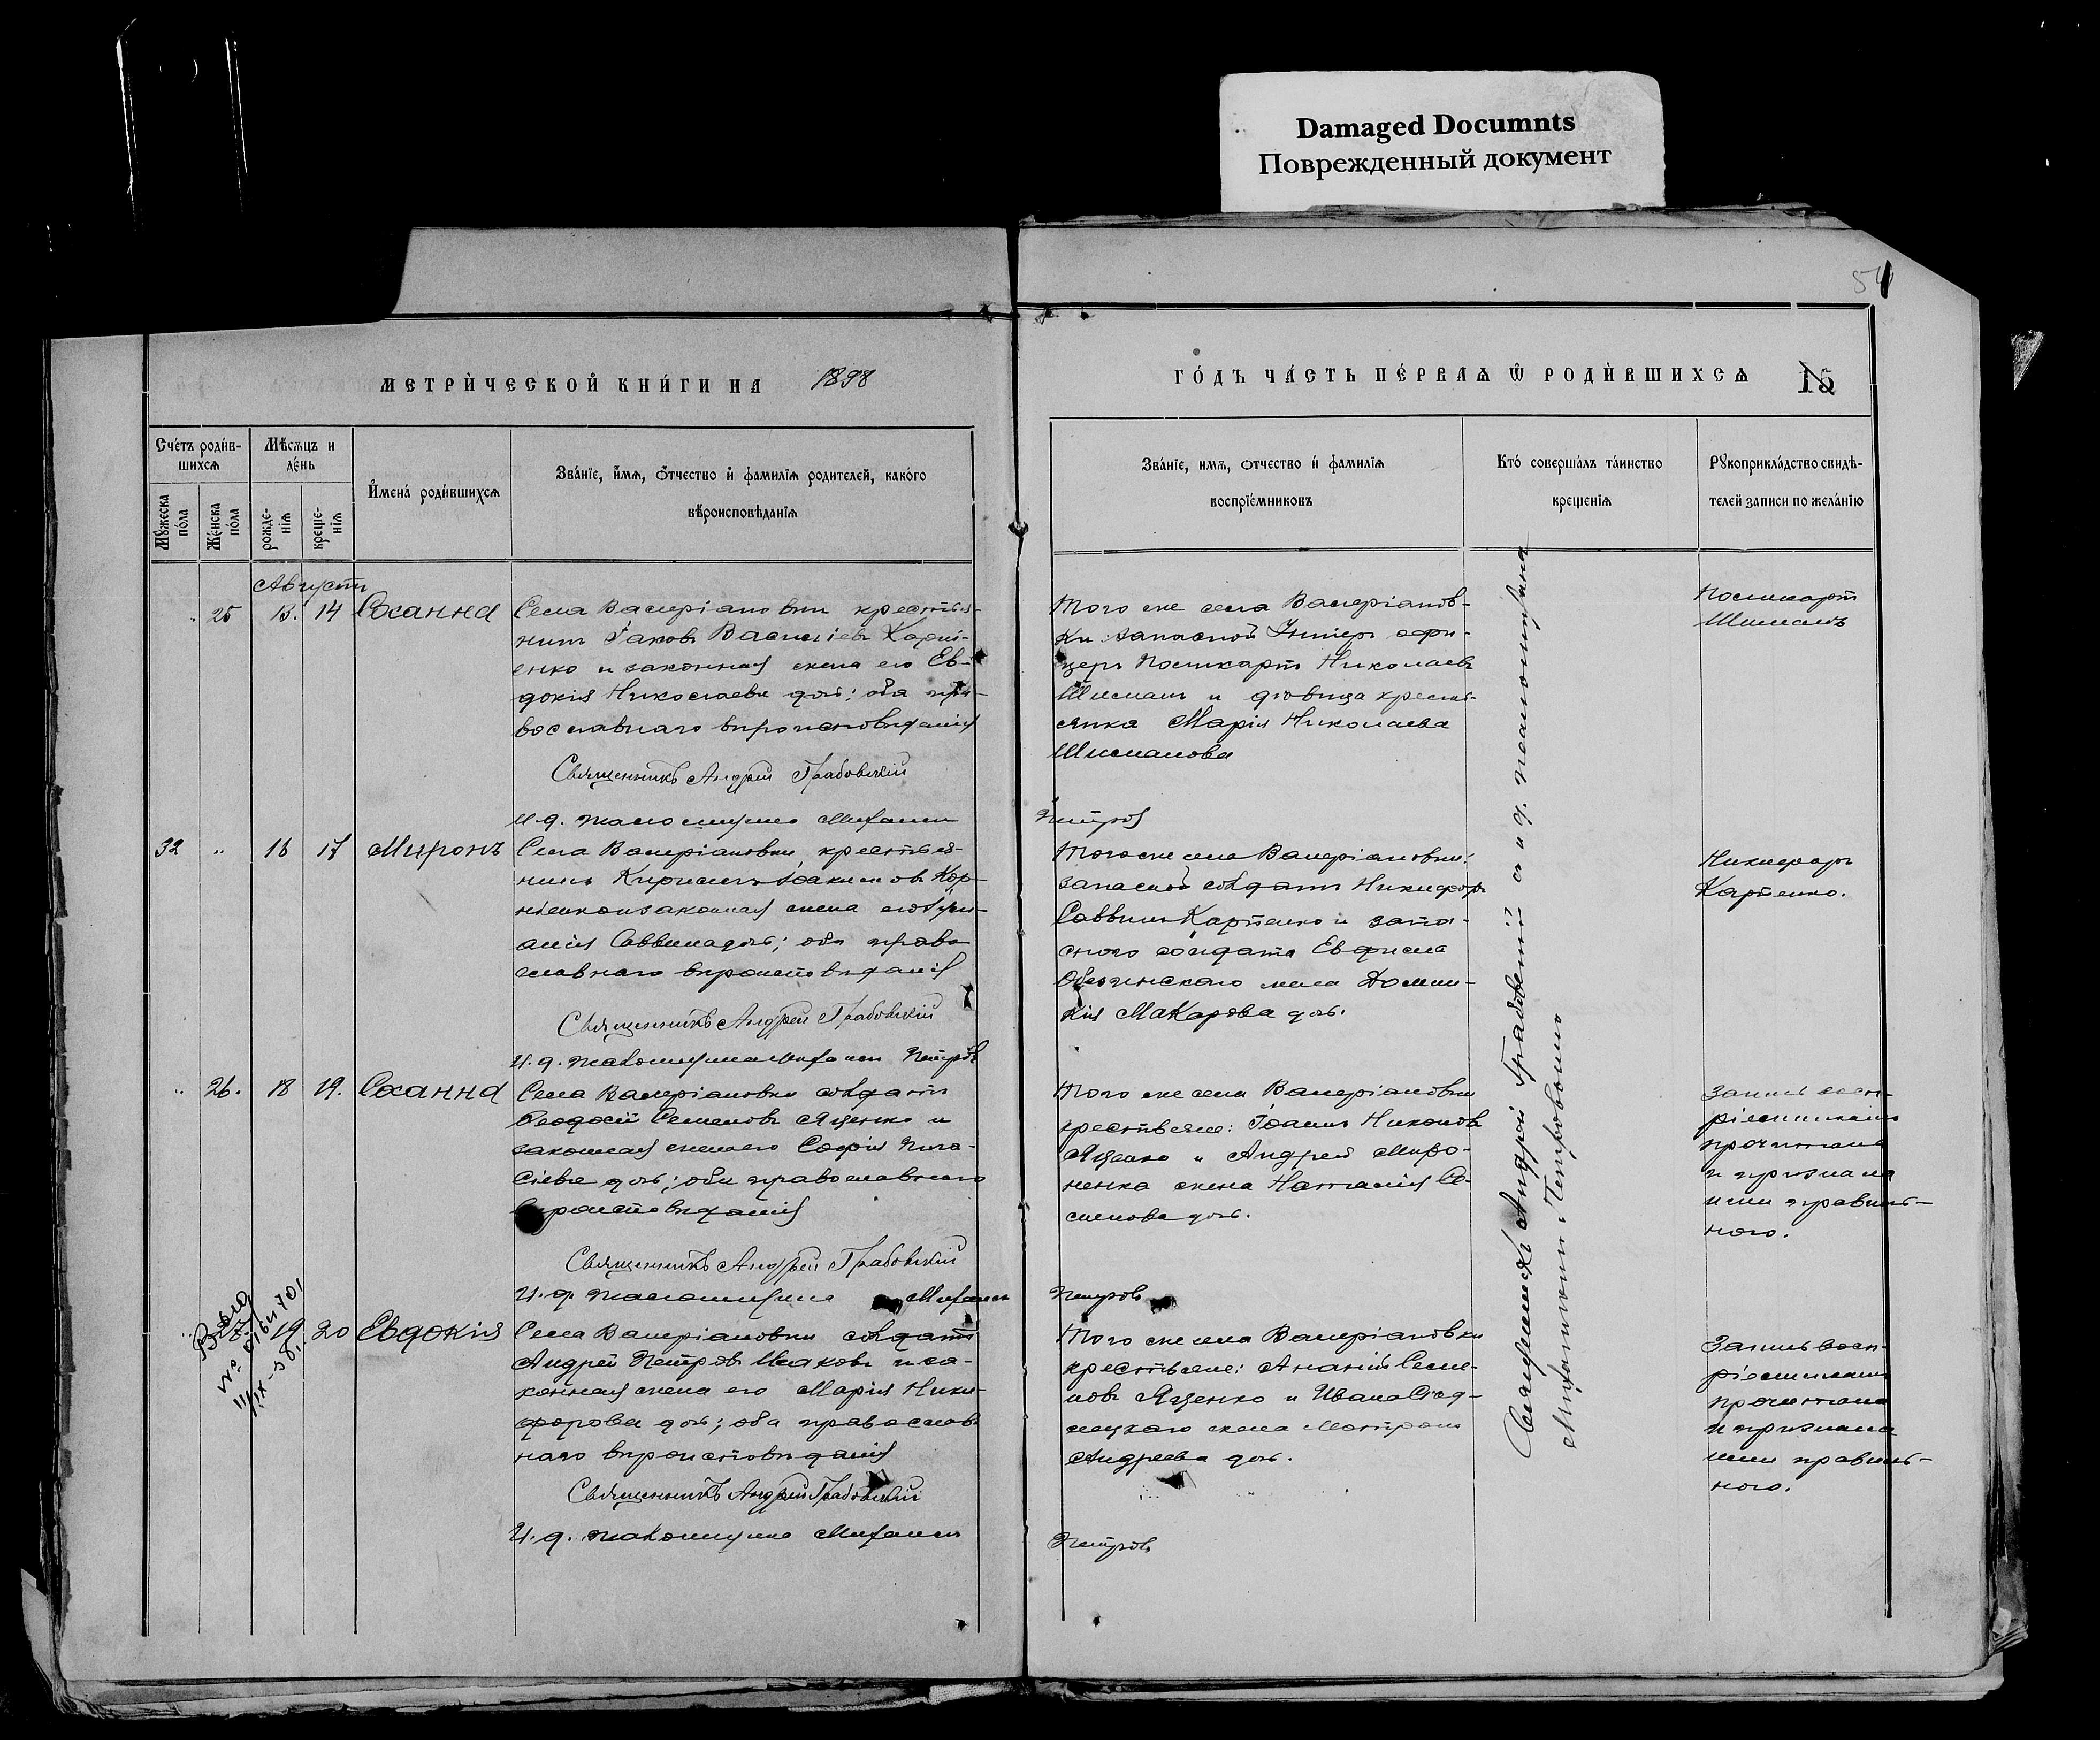 Damaged Documnts
Поврежденный документ
54
МЕТРИ́ЧЕСКОЙ КНИ́ГИ НА 1898
ГО́ДЪ ЧА́СТЬ ПЕ́РВАѦ Ѿ РОДИ́ВШИХСѦ 15
Сче́тъ роди́в-
шихсѧ
Мѣсѧцъ и
де́нь
Мꙋжеска
по́ла
Же́нска
по́ла
рожде-
нїѧ
креще-
нїѧ
И҆мена̀ роди́вшихсѧ
Зва́нїе, и҆мѧ, ѻ҆́тчество и҆ фамилїѧ родителей, како́го
вѣроисповѣданїѧ
Зва́нїе, имѧ, ѻтчество и҆ фамилїѧ
воспрїе́мниковъ
Кто̀ соверша́лъ та́инство
креще́нїѧ
Рꙋкоприкла́дство свидѣ-
телей записи по жела́нїю
Августъ
25 13. 14 Ѳканна
Села Валеріановки крестья-
нинъ Іаковъ Василіевъ
енко и законная жена его Ев-
докія Николаева дочь; оба пра-
вославнаго вѣроисповѣданія
Священникъ Андрей Грабовскій
И. д. псаломщика Митрофанъ
Того же села Валеріанов-
ки запасной Унтеръ офи-
церъ Поликарпъ Николаевъ
Шишманъ и дѣвица кресть-
янка Марія Николаева
Шишманова
Петровъ
Поликарпъ
Шишманъ
32 " 16 17 Миронъ
Села Валеріановки, крестья-
нинъ Кириллъ Іоакимовъ Кор-
законная жена его
Саввина дочь; оба право
славнаго вѣроисповѣданія
Священникъ Андрей Грабовскій
И. д. псаломщика Петровъ
Того же села Валеріановки:
запасной солдатъ Никифоръ
Саввинъ Карпенко и запа-
сного солдата Евфима
жена Домни-
кія Макарова дочь.
Никифоръ
Карпенко.
" 26. 18 19. Ѳканна
Села Валеріановки солдатъ
Ѳеодосій Семеновъ Яценко и
законная жена его Софія
дочь; оба православнаго
вѣроисповѣданія
Священникъ Андрей Грабовскій
И. д. псаломщика
Того же села Валеріановки
крестьяне: Іоаннъ Никоновъ
Яценко и Андрея Миро-
ненка жена Наталія Се-
менова дочь.
Петровъ
Запись восп-
ріемникамъ
прочитана
и признана
ими правиль-
ною.
19 20 Евдокія
Села Валеріановки солдатъ
Андрей Петровъ и за-
конная жена его Марія Ники-
форова дочь; оба православ
наго вѣроисповѣданія
Священникъ Андрей Грабовскій
И. д. псаломщика
Того же села Валеріановки
крестьяне: Ананій Семе-
новъ Яценко и Ивана
жена Матрона
Андреева дочь.
Петровъ
Запись восп-
ріемникамъ
прочитана
и признана
ими правиль-
ною.
Священникъ Андрей Грабовскій съ и. д. псаломщика
Петровымъ